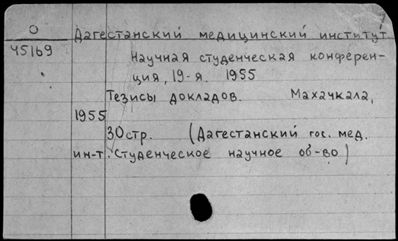 О Дагестанский медицинский институт
45169 Научная студенческая конферен-
ция, 19-я. 1955
Тезисы докладов. Махачкала,
1955
30стр. (Дагестанский гос. мед.
ин-т. Студенческое научное об-во)